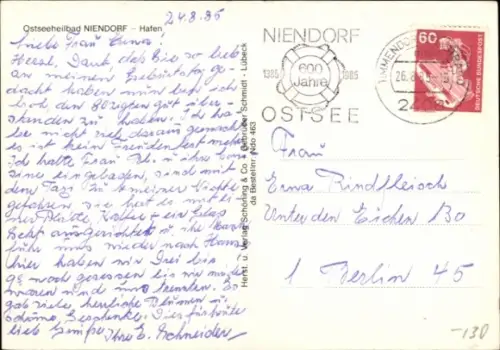 Ostseeheilbad NIENDORF - Hafen
24.8.85
Liebe Frau Erna!
Herzl. Dank, daß Sie so lieb
an meinen Geburtstag ge-
dacht haben nun bin ich
den 80zigen gut über-
standen zu haben. Ich ha-
be nicht viel daraus gemacht
es ist kein Freudenfest mehr
Ich hatte Frau
eingeladen, sind mit
dem Taxi zu meiner Nichte
gefahren, sie hat es mit ei-
ner Platte, Kaffee + ein Glas
Sekt ausgerichtet u. ihr
fuhr uns wieder nach Haus
hier haben wir drei bis
gesessen bis wir müde
waren und uns trennten. Es
gab viele herrliche Blumen u.
schöne Geschenke. Dies für heute
lieb Grüße Ihre E. Schneider
Herst. u. Verlag Schöning & Co + Gebrüder Schmidt - Lübeck
da Bestellnr. Ndo 463
NIENDORF
1385 600 Jahre 1985
OSTSEE
TIMMENDORF
26.8.
2408
60
DEUTSCHE BUNDESPOST
Frau
Erna Rindfleisch
Unter den Eichen 130
1 Berlin 45
-130